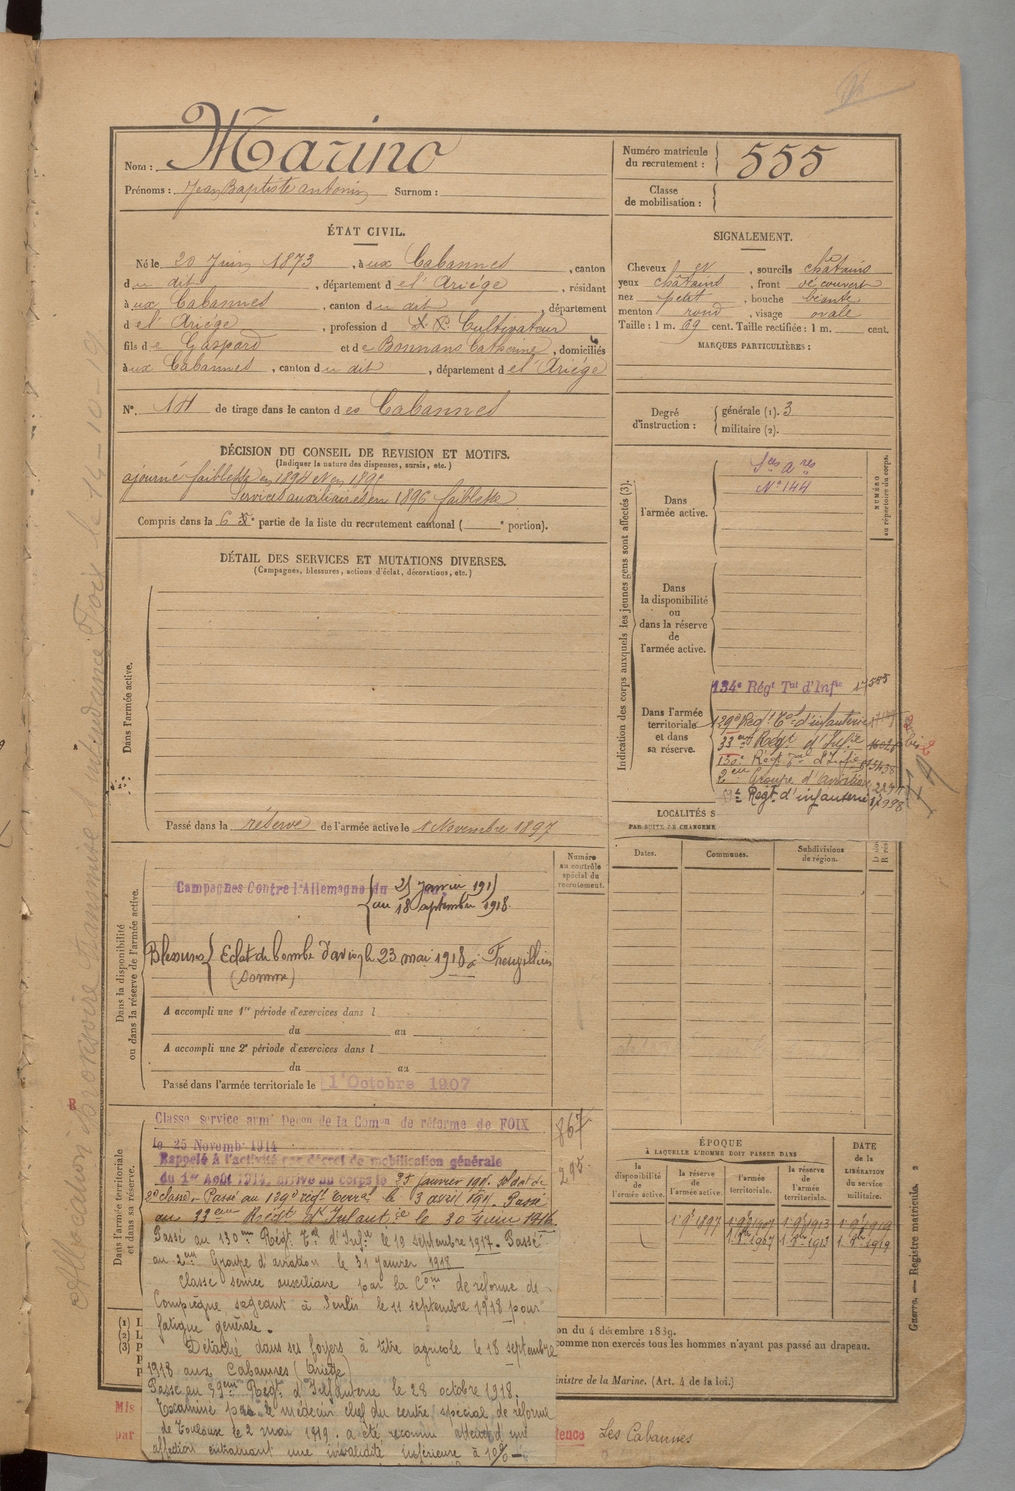 Nom : Marino
Prénoms : Jean Baptiste Antonin Surnom :
Numéro matricule du recrutement : 555
Classe de mobilisation :
ÉTAT CIVIL.
Né le 20 Juin 1873, à ux Cabannes, canton
d u dit, département d e l'Ariége, résidant
à ux Cabannes, canton d u dit, département
d e l'Ariége, profession d Cultivateur
fils d e Gaspard et d e Bonnans Catherine, domiciliés
à ux Cabannes, canton d u dit, département d e l'Ariége
N°. de tirage dans le canton d es Cabannes
SIGNALEMENT.
Cheveux, sourcils châtains
yeux châtains, front découvert
nez petit, bouche béante
menton rond, visage ovale
Taille : 1 m. 69 cent. Taille rectifiée : 1 m. cent.
MARQUES PARTICULIÈRES :
Degré d'instruction :
générale (1). 3
militaire (2).
DÉCISION DU CONSEIL DE REVISION ET MOTIFS.
(Indiquer la nature des dispenses, sursis, etc.)
ajourné faiblesse en 1894 et en 1895
Services auxiliaires en 1896 faiblesse
Compris dans la 6e partie de la liste du recrutement cantonal ( e portion).
DÉTAIL DES SERVICES ET MUTATIONS DIVERSES.
(Campagnes, blessures, actions d'éclat, décorations, etc.)
Dans l'armée active.
Passé dans la réserve de l'armée active le 1 Novembre 1897
Indication des corps auxquels les jeunes gens sont affectés (3).
NUMÉRO au répertoire du corps.
Dans l'armée active.
N° 144
Dans la disponibilité ou dans la réserve de l'armée active.
Dans l'armée territoriale et dans sa réserve.
134e Régt Tal d'Infie 555
129e Régt Tal d'infanterie
33eme Régt d'Infie
130e Régt Tal d'Infie
2eme Groupe d'aviation
Regt d'infanterie
LOCALITÉS S
PAR SUITE DE CHANGEME
Dates. Communes. Subdivisions de région.
Dans la disponibilité ou dans la réserve de l'armée active.
Numéro au contrôle spécial du recrutement.
Campagnes Contre l'Allemagne du 25 janvier 191
au 18 septembre 1918
Blessures Eclat de bombe d'avion le 23 mai 1918 à
(Somme)
A accompli une 1re période d'exercices dans l
du au
A accompli une 2e période d'exercices dans l
du au
Passé dans l'armée territoriale le 1 Octobre 1907
Dans l'armée territoriale et dans sa réserve.
Classé service armé Décon de la Comon de réforme de FOIX
le 25 Novembre 1914
Rappelé à l'activité par décret de mobilisation générale
du 1er Août 1914, arrivé au corps le 25 janvier 191 soldat de
2e classe. Passé au 129e régt terral le 3 avril 191 Passé
au 33eme Régt d'Infantie le 30 juin 1916
Passé au 130eme Régt Tal d'Infie le 19 septembre 1917. Passé
au 2eme Groupe d'aviation le 31 janvier 1918
Classé service auxiliaire par la Con de réforme de
Compiègne siégeant à Senlis le 11 septembre 1918 pour
fatigue générale.
Détaché dans ses foyers à titre agricole le 18 septembre
1918 aux Cabannes (Ariège)
Passé au 59eme Régt d'Infanterie le 28 octobre 1918.
Examiné par le médecin chef du centre spécial de réforme
de Toulouse le 2 mai 1919. a été reconnu atteint d'une
affection entraînant une invalidité inférieure à 10%
867
295
ÉPOQUE
À LAQUELLE L'HOMME DOIT PASSER DANS
DATE DE LA LIBÉRATION DU SERVICE MILITAIRE.
la disponibilité de l'armée active.
la réserve de l'armée active.
l'armée territoriale.
la réserve de l'armée territoriale.
1 9bre 1897
1 8bre 1907 1 8bre 1913 1 8bre 1919
on du 4 décembre 1889.
comme non exercés tous les hommes n'ayant pas passé au drapeau.
inistre de la Marine. (Art. 4 de la loi.)
Mis
par
dence Les Cabannes
Guerre. — Registre matricule. 2
Allocation provisoire transmise à intendance Foix le 14-10-19